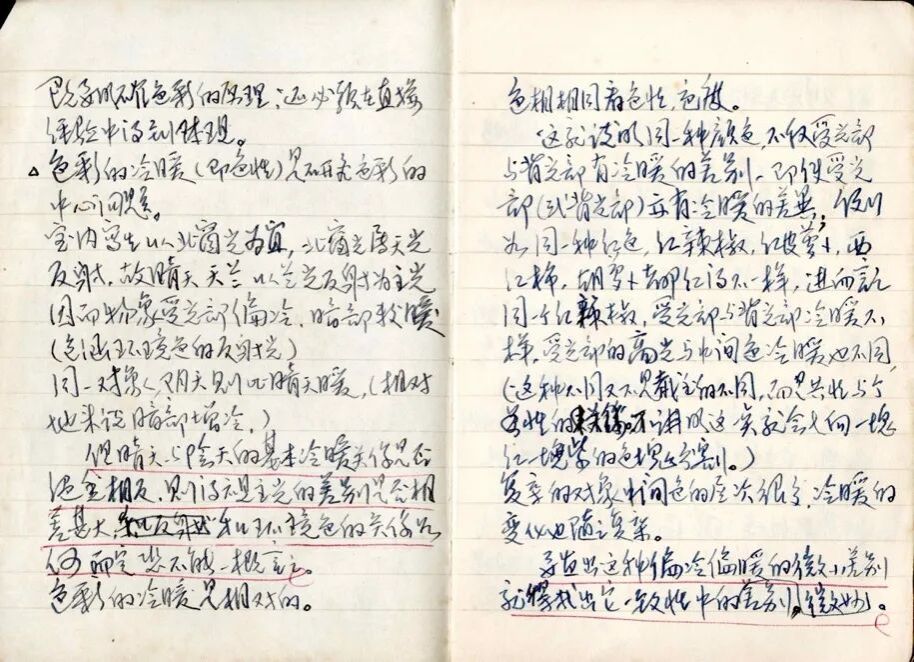 既要明确色彩的原理，还必须在直接
经验中得到体现。
△色彩的冷暖(即色性)是研究色彩的
中心问题。
室内写生以北窗光为宜，北窗光属天光
反射，故晴天天兰以兰光反射为主光
因而物象受光部偏冷，暗部较暖
(包括环境色的反射光)
同一对象，阴天则比晴天暖，(相对
地来说暗部增冷。)
但晴天与阴天的基本冷暖关系是否
完全相反，则该视主光的差别是否相
差甚大和环境色的关系如
何而定 不能一概而言。
色彩的冷暖是相对的。
色相相同看色性，色度。
这就说明同一种颜色，不仅受光部
与背光部有冷暖的差别，即使受光
部(或背光部)亦有冷暖的差异，假如
如同一种红色，红辣椒，红皮萝卜，西
红柿，胡萝卜都红得不一样，进而言
同一个红辣椒，受光部与背光部冷暖不
一样，受光部的高光与中间色冷暖也不同
(这种不同又不是截然的不同，而是共性与个
性的关系。不讲明这点就会走向一块
红一块紫的色块分割。)
复杂的对象中间色的层次很多，冷暖的
变化也随之复杂。
要画出这种偏冷偏暖的微小差别
就得找出它一致性中的差别，微妙。